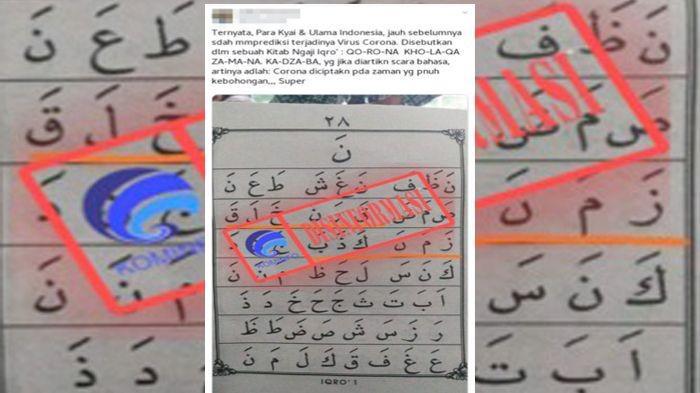 Ternyata, Para Kyai & Ulama Indonesia, jauh sebelumnya
sdah mmprediksi terjadinya Virus Corona. Disebutkan
dlm sebuah Kitab Ngaji Iqro' : QO-RO-NA KHO-LA-QA
ZA-MA-NA. KA-DZA-BA, yg jika diartikn scara bahasa,
artinya adlah: Corona diciptakn pda zaman yg pnuh
kebohongan,,, Super
٢٨
نَ
نَ ظَ فَ نَ غَ شَ طَ عَ نَ
خَ لَ قَ
زَ مَ نَ كَ ذَ بَ
كَ نَ سَ لَ حَ ظَ اَ نَ نَ
اَ بَ تَ ثَ جَ حَ خَ دَ ذَ
رَ زَ سَ شَ صَ ضَ طَ ظَ
عَ غَ فَ قَ كَ لَ مَ نَ
IQRO' 1
KOMINFO
DISINFORMASI